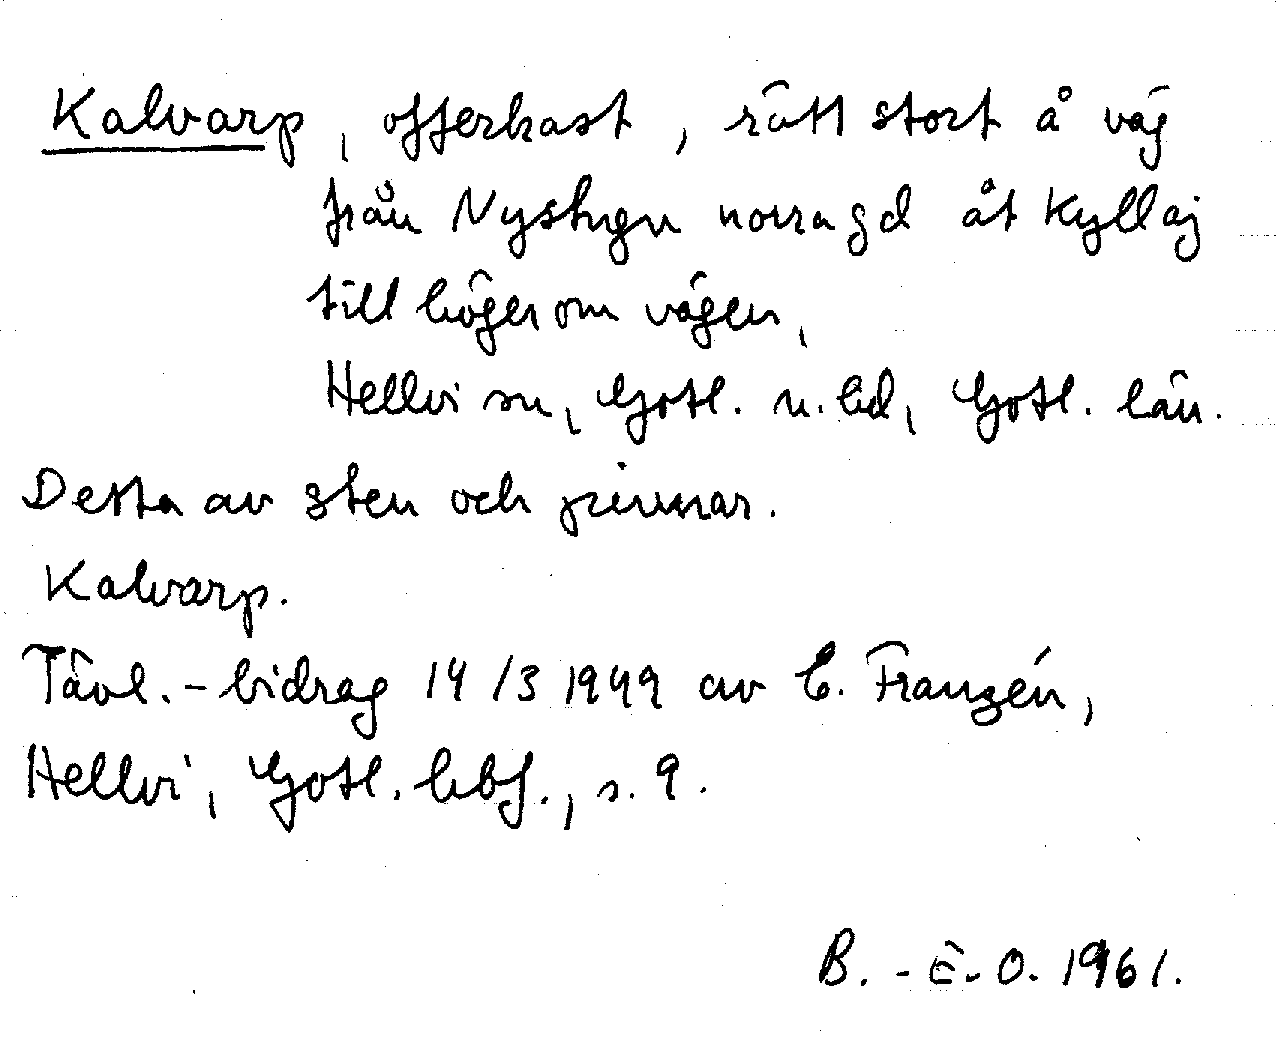 Kalvarp, offerkast, rätt stort å väg
från Nystugu norra gd åt Kyllaj
till höger om vägen,
Hellvi sn, Gotl. n. hd, Gotl. län.
Detta av sten och pinnar.
Kalvarp.
Tävl.-bidrag 14/3 1949 av C. Franzén,
Hellvi, Gotl. hbf., s. 9.
B.-E.O. 1961.